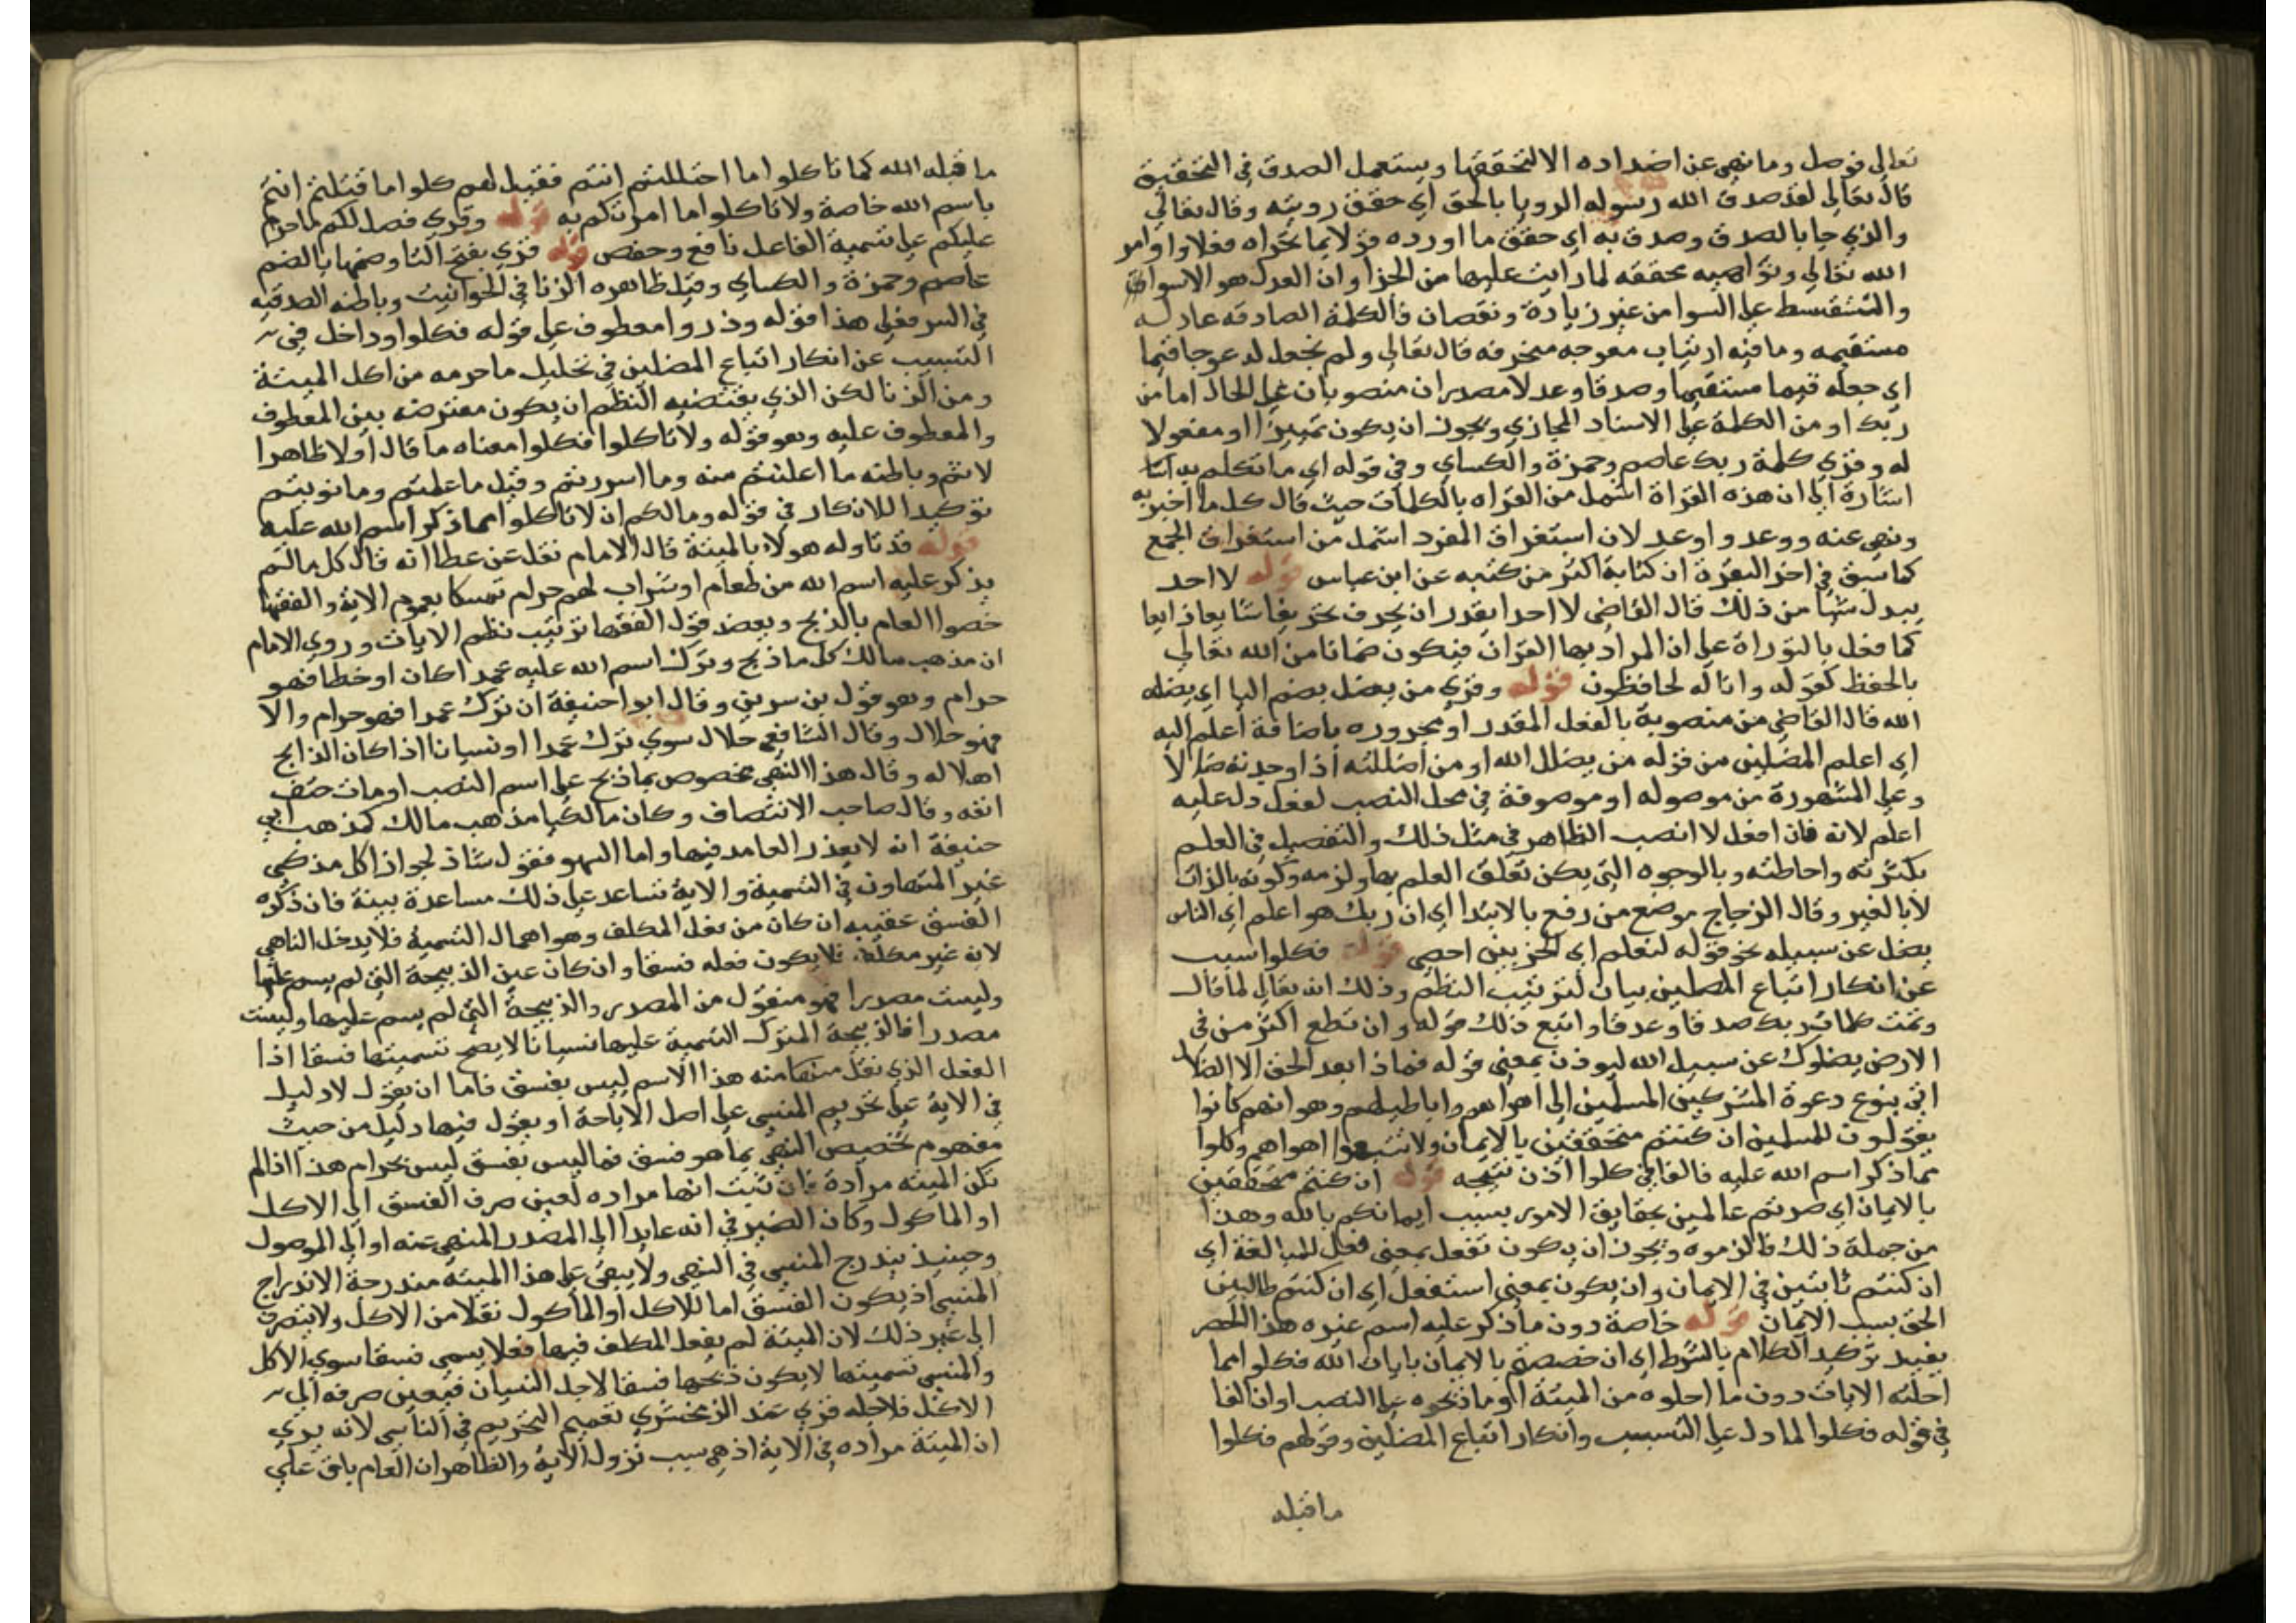 تعالى فوصل وما نهى عن اضداده الا لتحققها ويستعمل الصدق في التحقيق
قال تعالى لقد صدق الله رسوله الرويا بالحق اي حقق رويته وقال تعالى
والذي جا بالصدق وصدق به اي حقق ما اورده قولا بما تحراه فعلا واوامر
الله تعالى ونواهيه محققه لما رايت عليها من الجزا وان العدل هو الاسوا
والتقسط على السوا من غير زيادة ونقصان فالكلمة الصادقه عادله
مستقيمه وما فيه ارتياب معوجه منحرفه قال تعالى ولم نجعل له عوجا قيما
اي جعله قيما مستقيما وصدقا وعدلا مصدران منصوبان على الحال اما من
ربك او من الكلمة على الاسناد المجازي ويجوز ان يكون تمييزا او مفعولا
له وقري كلمة ربك عاصم وحمزة والكساي وفي قوله اي ما تكلم به
اشارة الى ان هذه القراة اشمل من القراه بالكلمات حيث قال كل ما اخبر به
ونهى عنه ووعد واوعد لان استغراق المفرد اشمل من استغراق الجمع
كما سبق في اخر البقرة ان كتابة اكثر من كتبه عن ابن عباس قوله لا احد
يبدل شيا من ذلك قال القاضي لا احد يقدر ان يحرف تحريفا شايعا ذايعا
كما فعل بالتوراة على ان المراد بها القران فيكون ضمانا من الله تعالى
بالحفظ كقوله وانا له لحافظون قوله وقري من يضل بضم اليا اي يضله
الله قال القاضي من منصوبة بالفعل المقدر او مجروره باضافة اعلم اليه
اي اعلم المضلين من قوله من يضلل الله او من اضللته اذا وجدته ضالا
وعلى المشهورة من موصوله او موصوفة في محل النصب لفعل دل عليه
اعلم لانه فان افعل لا انصب الظاهر في مثل ذلك والتفضيل في العلم
بكثرته واحاطته وبالوجوه التي يمكن تعلق العلم بها ولزمه وكونه بالذات
لا بالغير وقال الزجاج موضع من رفع بالابتدا اي ان ربك هو اعلم اي الناس
يضل عن سبيله نحو قوله لنعلم اي الحزبين احصى قوله فكلوا سبب
عن انكار اتباع المضلين بيان لترتيب النظم وذلك انه تعالى لما قال
وتمت كلمات ربك صدقا وعدقا واتبع ذلك قوله وان تطع اكثر من في
الارض يضلوك عن سبيل الله ليوذن بمعنى قوله فماذا بعد الحق الا الضلال
اتى بنوع دعوة المشركين المسلمين الى اهواهم واباطيلهم وهو انهم كانوا
يقولون للمسلمين ان كنتم متحققين بالايمان ولا تتبعوا اهواهم وكلوا
مما ذكر اسم الله عليه فالفا في كلوا اذن نتيجه قوله ان كنتم متحققين
بالايمان اي صرتم عالمين بحقايق الامور بسبب ايمانكم بالله وهذا
من جملة ذلك فالزموه ويجوز ان يكون تفعل بمعنى فعل للمبالغة اي
ان كنتم ثابتين في الايمان وان يكون بمعنى استفعل اي ان كنتم طالبين
الحق بسبب الايمان قوله خاصة دون ما ذكر عليه اسم غيره هذا الحصر
يفيد توكيد الكلام بالشرط اي ان خصصتم بالايمان بايات الله فكلوا مما
احلته الايات دون ما احلوه من الميتة او ما ذبحوه على النصب او ان الفا
في قوله فكلوا لما دل على التسبيب وانكار اتباع المضلين وقولهم فكلوا
ما قبله
ما قبله الله كما تاكلوا ما احتللتم انتم فقيل لهم كلوا ما قتلتم انتم
باسم الله خاصة ولا تاكلوا ما امرتكم به قوله وقري فصل لكم ما حرم
عليكم على تسمية الفاعل نافع وحفص قوله قري بفتح اليا وضمها بالضم
عاصم وحمزة والكساي وقيل ظاهره الزنا في الحوانيت وباطنه الصدقيه
في السر فعلى هذا قوله وذروا معطوف على قوله فكلوا وداخل في
التسبيب عن انكار اتباع المضلين في تحليل ما حرمه من اكل الميتة
ومن الزنا لكن الذي يقتضيه النظم ان يكون معترضه بين المعطوف
والمعطوف عليه وهو قوله ولا تاكلوا فكلوا معناه ما قال اولا ظاهرا
لاثم وباطنه ما اعلنتم منه وما اسررتم وقيل ما علمتم وما نويتم
توكيدا للانكار في قوله وما لكم ان لا تاكلوا مما ذكر اسم الله عليه
قوله قد تاوله هولاء بالميتة قال الامام نقل عن عطا انه قال كل ما لم
يذكر عليه اسم الله من طعام او شراب لهم حرام تمسكا بعموم الاية والفقها
خصوا العام بالذبح ويعضد قول الفقها ترتيب نظم الايات وروى الامام
ان مذهب مالك كل ما ذبح وترك اسم الله عليه عمدا كان او خطا فهو
حرام وهو قول بن سرين وقال ابوا حنيفة ان ترك عمدا فهو حرام والا
فهو حلال وقال الشافعي حلال سوى ترك عمدا او نسيانا اذا كان الذابح
اهلا له وقال هذا النهى مخصوص بما ذبح على اسم النصب او مات حتف
انفه وقال صاحب الانتصاف وكان مالكيا مذهب مالك كمذهب ابي
حنيفة انه لا يعذر العامد فيها واما السهو فقول شاذ لجواز اكل مذكى
غير المتهاون في التسمية والاية تساعد على ذلك مساعدة بينة فان ذكره
الفسق عقيبه ان كان من فعل المكلف وهو اهمال التسمية فلا يدخل الناهي
لانه غير مكلف فلا يكون فعله فسقا وان كان عين الذبيحة التي لم يسم عليها
وليست مصدرا فهو منقول من المصدر والذبيحة التي لم يسم عليها وليست
مصدرا فالذبيحة المتروك التسمية عليها نسيانا لا يصح تسميتها فسقا اذا
الفعل الذي نقل منها منه هذا الاسم ليس بفسق فاما ان يقول لا دليل
في الاية على تحريم المنسي على اصل الاباحة او يقول فيها دليل من حيث
مفهوم تخصيص النهي بما هو فسق فما ليس بفسق ليس بحرام هذا اذا لم
تكن الميته مرادة فان ثبت انها مراده تعين صرف الفسق الى الاكل
او الماكول وكان الضمير في انه عايدا الى المصدر المنهي عنه او الى الموصول
وحينيذ يندرج المنسي في النهي ولا يبقى على هذا الميته مندرجة الاندراج
المنسي اذ يكون الفسق اما للاكل او الماكول نقلا من الاكل ولا ينصرف
الى غير ذلك لان الميتة لم يفعل المكلف فيها فعلا يسمى فسقا سوى الاكل
والمنسي تسميتها لا يكون ذبحها فسقا لاجل النسيان فتعين صرفه الى
الاكل فلاجله قوي عند الزمخشري تعميم التحريم في الناسي لانه يرى
ان الميتة مراده في الاية اذ هي سبب نزول الاية والظاهر ان العام باق على